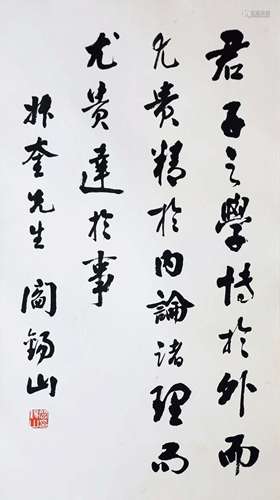 君子之學博於外而
尤貴精於內論諸理而
尤貴達於事
叔奎先生 閻錫山